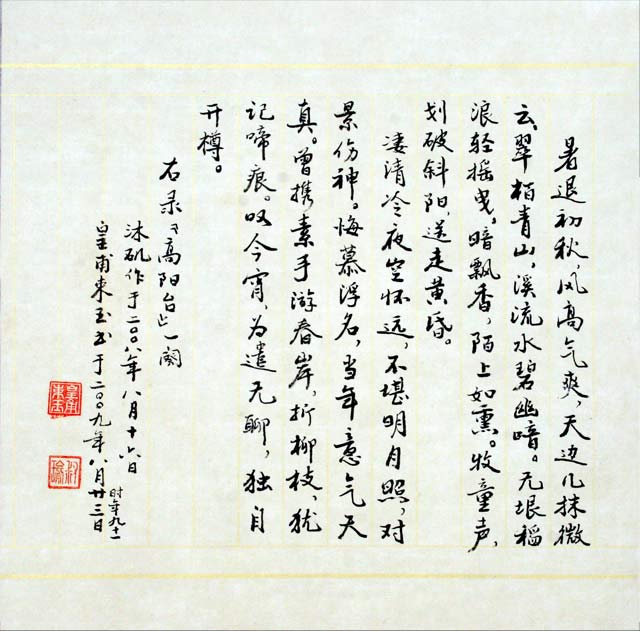 暑退初秋，风高气爽，天边几抹微
云。翠柏青山，溪流水碧幽暗。无垠稻
浪轻摇曳。暗飘香，陌上如熏。牧童声，
划破斜阳，送走黄昏。
凄清冷夜空怀远，不堪明月照，对
景伤神。悔慕浮名，当年意气天
真。曾携素手游春岸，折柳枝，犹
记啼痕。叹今宵，为遣无聊，独自
开樽。
右录《高阳台》一阕
沐矶作于二〇〇八年八月十六日
皇甫東玉书于二〇〇九年八月廿三日
时年九十一
皇甫東玉